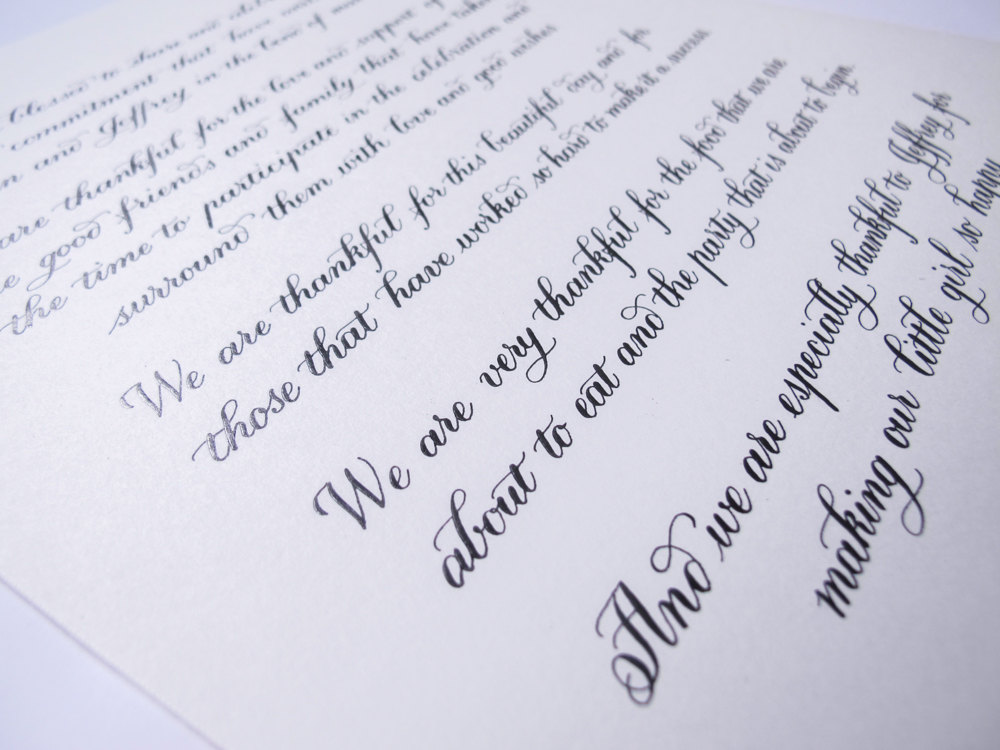 blessed to share and
commitment that have
and Jeffrey in the love of
are thankful for the love and support of
good friends and family that have taken
the time to participate in the celebration and
surround them with love and good wishes
We are thankful for this beautiful day and for
those that have worked so hard to make it a success
We are very thankful for the food that we are
about to eat and the party that is about to begin.
And we are especially thankful to Jeffrey for
making our little girl so happy